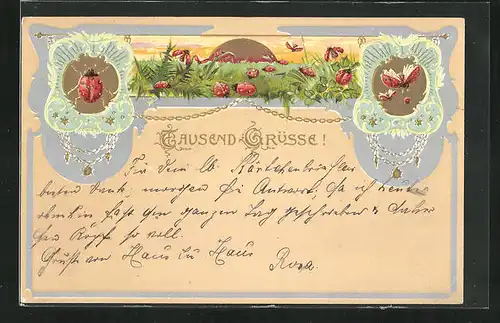 TAUSEND GRÜSSE!
Für Dein lb. Kärtchen
besten Dank, morgen die Antwort, da ich heute
fast den ganzen Tag geschrieben & daher
den Kopf so voll.
Grüße von Haus zu Haus
Rosa